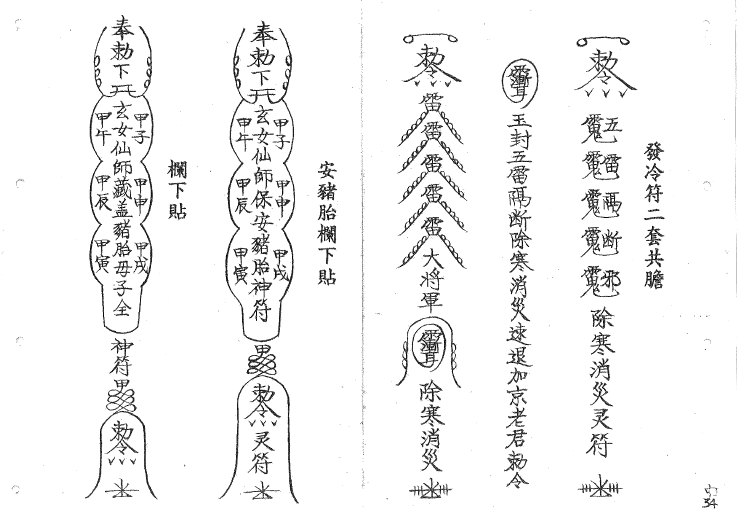 發冷符二套共膽
勅令
五雷隔断邪
除寒消災灵符
玉封五雷隔断除寒消災速退加京老君勅令
勅令
雷雷雷雷雷大将軍
除寒消災
安豬胎欄下貼
奉勅下
玄女仙師保安豬胎神符
甲子 甲申 甲戌
甲午 甲辰 甲寅
甲
勅令
灵符
欄下貼
奉勅下
玄女仙師藏盖豬胎毋子全
甲子 甲申 甲戌
甲午 甲辰 甲寅
神符甲
勅令
54